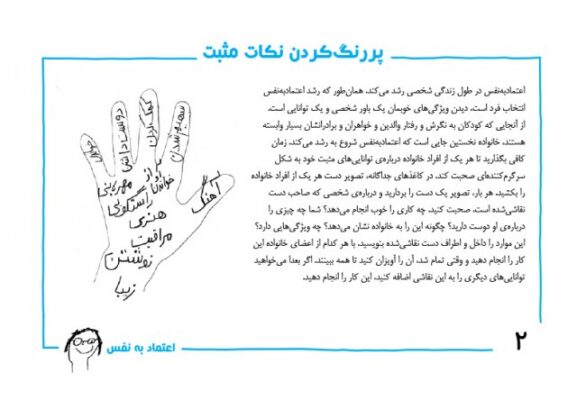 پررنگ‌کردن نکات مثبت
اعتمادبه‌نفس در طول زندگی شخصی رشد می‌کند. همان‌طور که رشد اعتمادبه‌نفس
انتخاب فرد است، دیدن ویژگی‌های خوبمان یک باور شخصی و یک توانایی است.
از آنجایی که کودکان به نگرش و رفتار والدین و خواهران و برادرانشان بسیار وابسته
هستند، خانواده نخستین جایی است که اعتمادبه‌نفس شروع به رشد می‌کند. زمان
کافی بگذارید تا هر یک از افراد خانواده درباره‌ی توانایی‌های مثبت خود به شکل
سرگرم‌کننده‌ای صحبت کند. در کاغذهای جداگانه، تصویر دست هر یک از افراد خانواده
را بکشید. هر بار، تصویر یک دست را بردارید و درباره‌ی شخصی که صاحب دست
نقاشی‌شده است، صحبت کنید. چه کاری را خوب انجام می‌دهد؟ شما چه چیزی را
درباره‌ی او دوست دارید؟ چگونه این را به خانواده نشان می‌دهد؟ چه ویژگی‌هایی دارد؟
این موارد را داخل و اطراف دست نقاشی‌شده بنویسید. با هر کدام از اعضای خانواده این
کار را انجام دهید و وقتی تمام شد، آن را آویزان کنید تا همه ببینند. اگر بعدا می‌خواهید
توانایی‌های دیگری را به این نقاشی اضافه کنید، این کار را انجام دهید.
دوست‌داشتنی
کمک‌کردن
مهربانی
آواز
خواندن
راستگویی
آهنگ
هنری
مراقبت
نوشتن
زیبا
۲
اعتماد به نفس